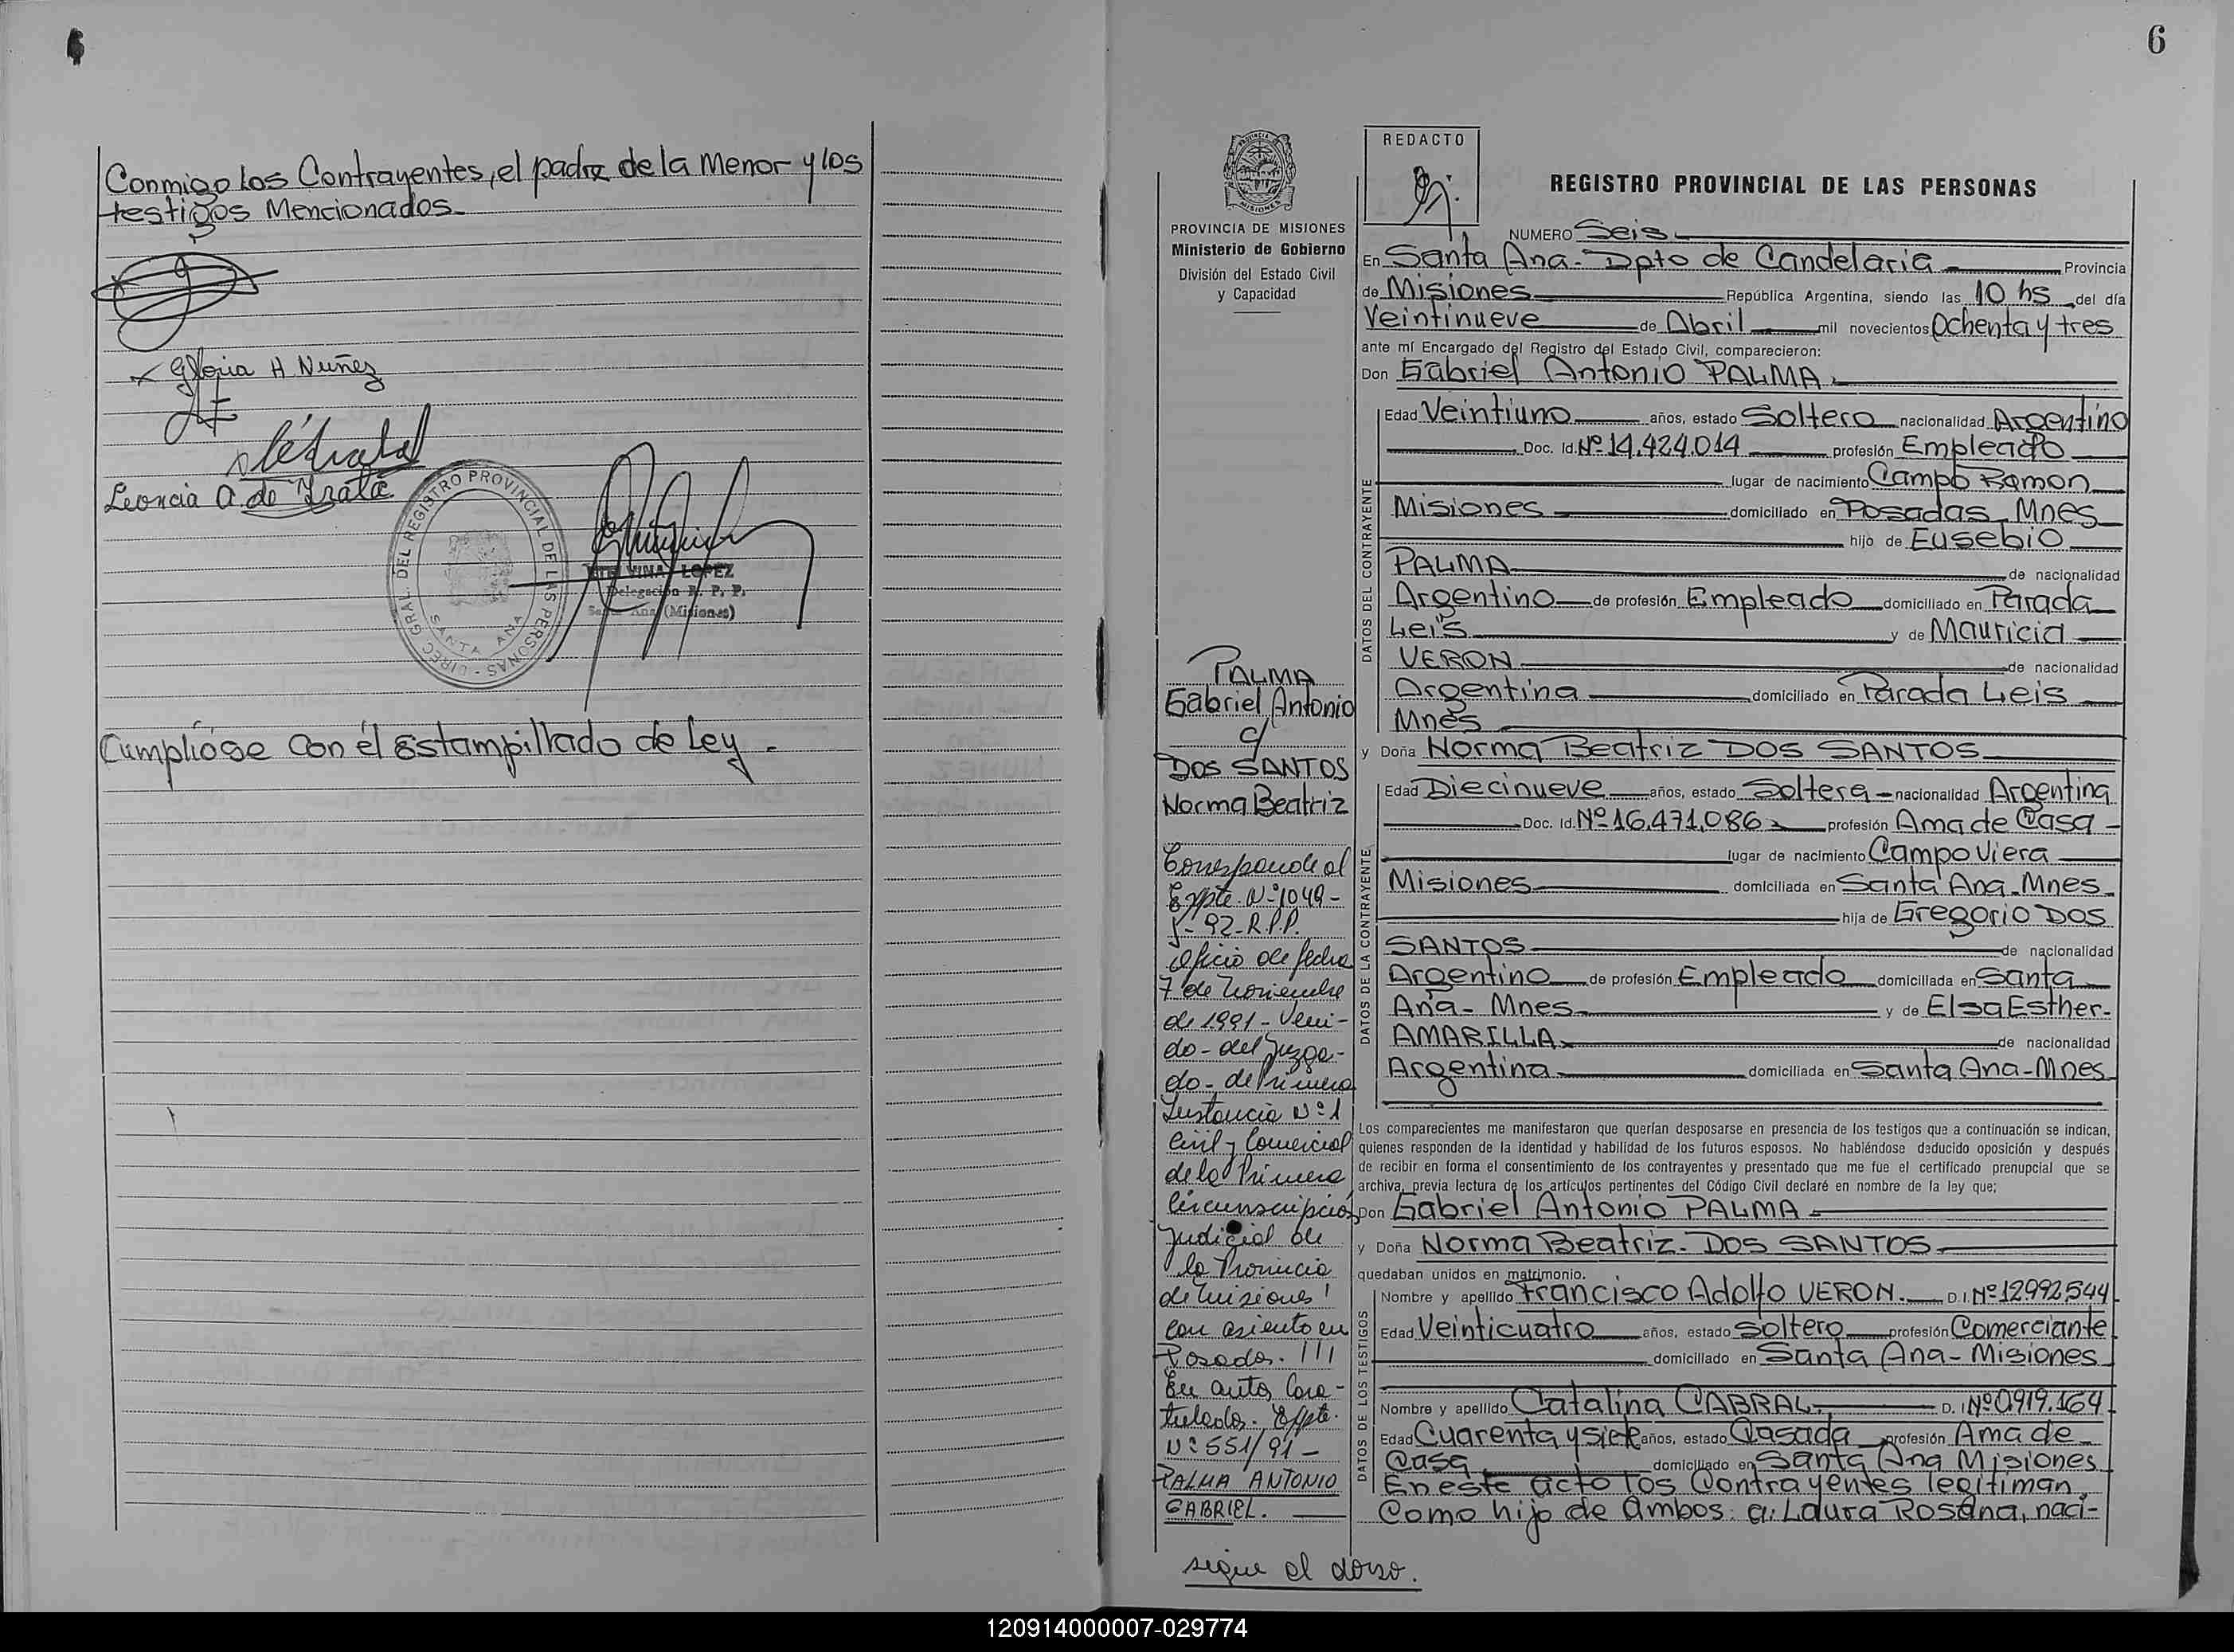 Conmigo los Contrayentes, el padre de la Menor y los
testigos Mencionados.
Gloria H Nuñez
Leoncia A. de Zrata
DIREC. GRAL. DEL REGISTRO PROVINCIAL DE LAS PERSONAS -
SANTA ANA
LOPEZ
Delegación R. P. P.
Santa Ana (Misiones)
Cumplióse Con el Estampillado de Ley.
6
PROVINCIA
MISIONES
PROVINCIA DE MISIONES
Ministerio de Gobierno
División del Estado Civil
y Capacidad
PALMA
Gabriel Antonio
c/
DOS SANTOS
Norma Beatriz
Corresponde al
Eppte. Nº 1049-
J-92-R.P.P.
Oficio de fecha
7 de Noviembre
de 1991- Veni-
do- del Juzga-
do- de Primera
Instancia Nº 1
Civil y Comercial
de la Primera
Circunscripción
Judicial de
la Provincia
de Misiones
con asiento en
Posadas.
En autos Cara-
tulados. Eppte.
Nº 551/91-
PALMA ANTONIO
GABRIEL.
sigue al dorso.
REDACTO
REGISTRO PROVINCIAL DE LAS PERSONAS
NUMERO Seis
En Santa Ana- Dpto de Candelaria Provincia
de Misiones República Argentina, siendo las 10 hs del día
Veintinueve de Abril mil novecientos Ochenta y tres
ante mí Encargado del Registro del Estado Civil, comparecieron:
Don Gabriel Antonio PALMA
DATOS DEL CONTRAYENTE
Edad Veintiuno años, estado Soltero nacionalidad Argentino
Doc. Id. Nº 14.424.014 profesión Empleado
lugar de nacimiento Campo Ramon
Misiones domiciliado en Posadas- Mnes
hijo de Eusebio
PALMA de nacionalidad
Argentino de profesión Empleado domiciliado en Parada
Leis y de Mauricia
VERON de nacionalidad
Argentina domiciliado en Parada Leis
Mnes
y Doña Norma Beatriz DOS SANTOS
DATOS DE LA CONTRAYENTE
Edad Diecinueve años, estado Soltera nacionalidad Argentina
Doc. Id. Nº 16.471.086 profesión Ama de Casa
lugar de nacimiento Campo Viera
Misiones domiciliada en Santa Ana-Mnes
hija de Gregorio DOS
SANTOS de nacionalidad
Argentino de profesión Empleado domiciliada en Santa
Ana- Mnes y de Elsa Esther-
AMARILLA de nacionalidad
Argentina domiciliada en Santa Ana-Mnes
Los comparecientes me manifestaron que querían desposarse en presencia de los testigos que a continuación se indican,
quienes responden de la identidad y habilidad de los futuros esposos. No habiéndose deducido oposición y después
de recibir en forma el consentimiento de los contrayentes y presentado que me fue el certificado prenupcial que se
archiva, previa lectura de los artículos pertinentes del Código Civil declaré en nombre de la ley que;
Don Gabriel Antonio PALMA
y Doña Norma Beatriz- DOS SANTOS
quedaban unidos en matrimonio.
DATOS DE LOS TESTIGOS
Nombre y apellido Francisco Adolfo VERON. D.I. Nº 12.992.544
Edad Veinticuatro años, estado Soltero profesión Comerciante
domiciliado en Santa Ana- Misiones
Nombre y apellido Catalina CABRAL D. I Nº 0.919.164
Edad Cuarenta y siete años, estado Casada profesión Ama de
Casa domiciliado en Santa Ana Misiones
En este acto los Contrayentes legitiman
Como hijo de Ambos: a: Laura Rosana, naci-
120914000007-029774